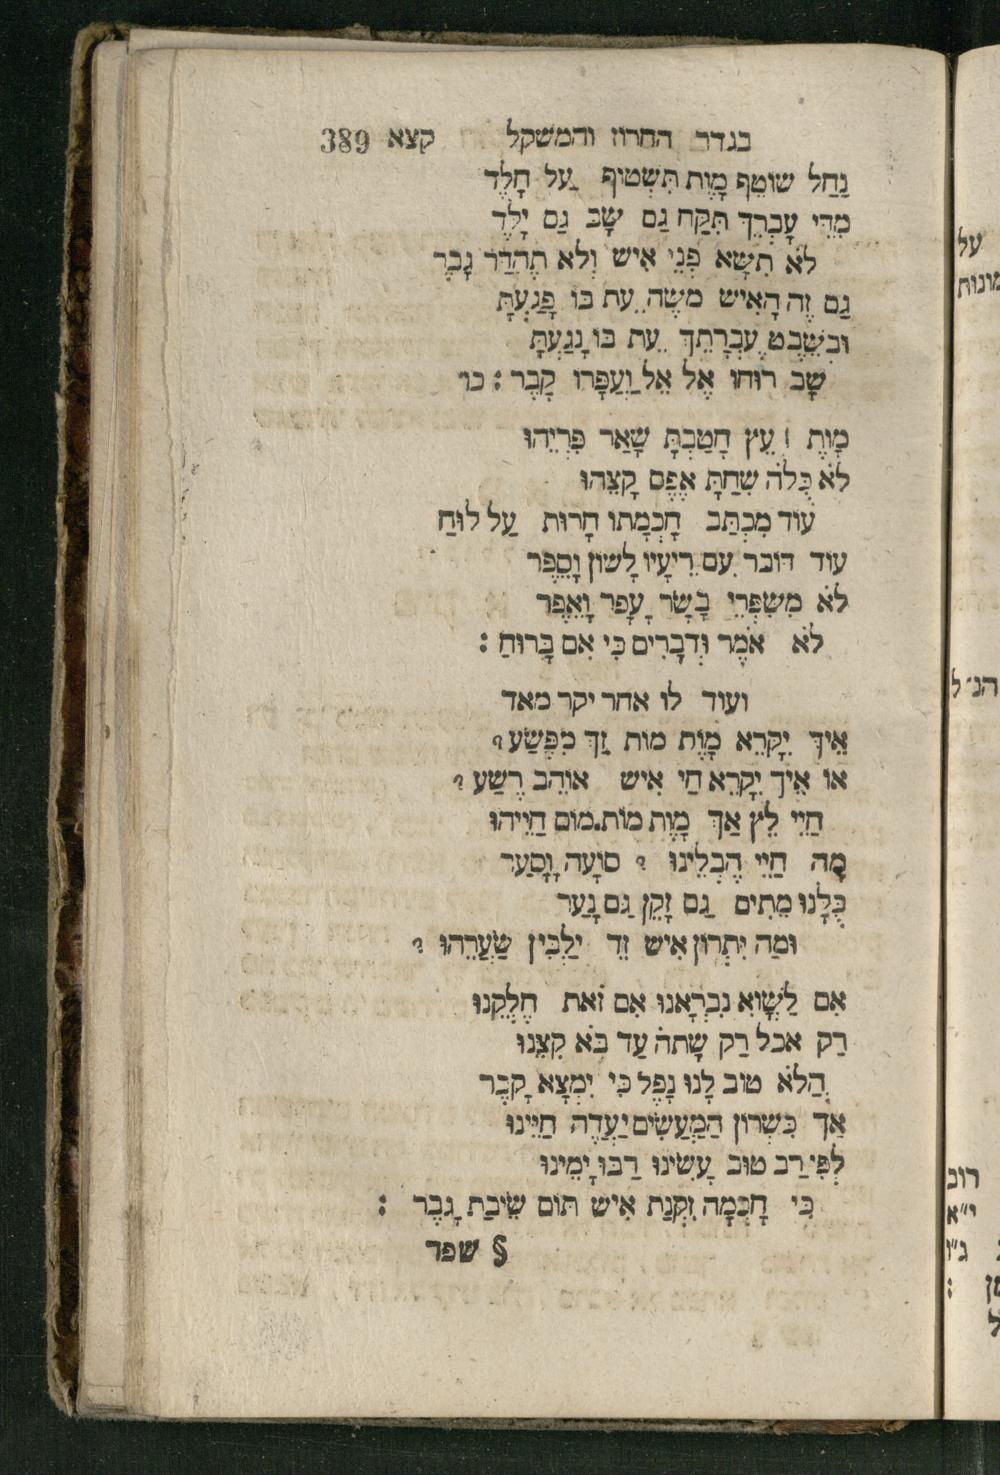 בגדר החרוז והמשקל קצא 389
נַחַל שוֹטֵף מָוֶת תִּשְׁטוֹף עַל חָלֶד
מִדֵּי עָבְרֵךְ תִּקַּח גַם שָׂב גַם יָלֶד
לֹא תִשָּׂא פְנֵי אִישׁ וְלא תֶהְדַּר גָבֶר
גַם זֶה הָאִישׁ משֶׁה עֵת בּוֹ פָגַעְתָּ
וּבְשֵׁבֶט עֶבְרָתֵךְ עֵת בּוֹ נָגַעְתָּ
שָׁב רוּחוֹ אֶל אֵל וַעֲפָרוֹ קָבֶר : כו׳
מָוֶת ! עֵץ חָטַבְתָּ שָׁאַר פִּרְיֵהוּ
לֹא כֻלֹּה שִׁחַתָּ אֶפֶס קָצֵהוּ
עוֹד מִכְתַּב חָכְמָתוֹ חָרוּת עַל לוּחַ
עוֹד דּוֹבר עִם רֵיעָיו לָשׁוֹן וָסֵפֶר
לֹא מִשִּׁפְרֵי בָשָׂר עָפָר וָאֵפֶר
לֹא אֹמֶר וּדְבָרִים כִּי אִם בָּרוּחַ :
ועוד לו אחר יקר מאד
אֵיךְ יִקָּרֵא מָוֶת מות זַךְ מִפֶּשַׁע ?
אוֹ אֵיךְ יִקָּרֵא חַי אִישׁ אוֹהֵב רֶשַׁע ?
חַיֵּי לֵץ אַךְ מָוֶת מוֹת.מוֹם חַיֵּיהוּ
מָה חַיֵּי הֶבְלֵינוּ ? סוֹעָה וָסָעַר
כֻּלָּנוּ מֵתִים גַּם זָקֵן גַּם נָעַר
וּמַה יִּתְרוֹן אִישׁ זֵד יַלְבִּין שַׂעֲרֵהוּ ?
אִם לַשָּׁוְא נִבְרָאנוּ אִם זֹאת חֶלְקֵנוּ
רַק אכל רַק שָׁתֹה עַד בֹּא קִצֵּנוּ
הֲלֹא טוֹב לָנוּ נָפֶל כִּי יִמְצָא קָבֶר
אַךְ כִּשְׁרוֹן הַמַּעֲשִׂים יַעְדֶּה חַיֵּינוּ
לְפִי רַב טוּב עָשִׂינוּ רַבּוּ יָמֵינוּ
כִּי חָכְמָה זִקְנַת אִישׁ תּוֹם שֵׂיבַת גָּבֶר :
§ שפר
על
הנ״ל
רוב
י״א